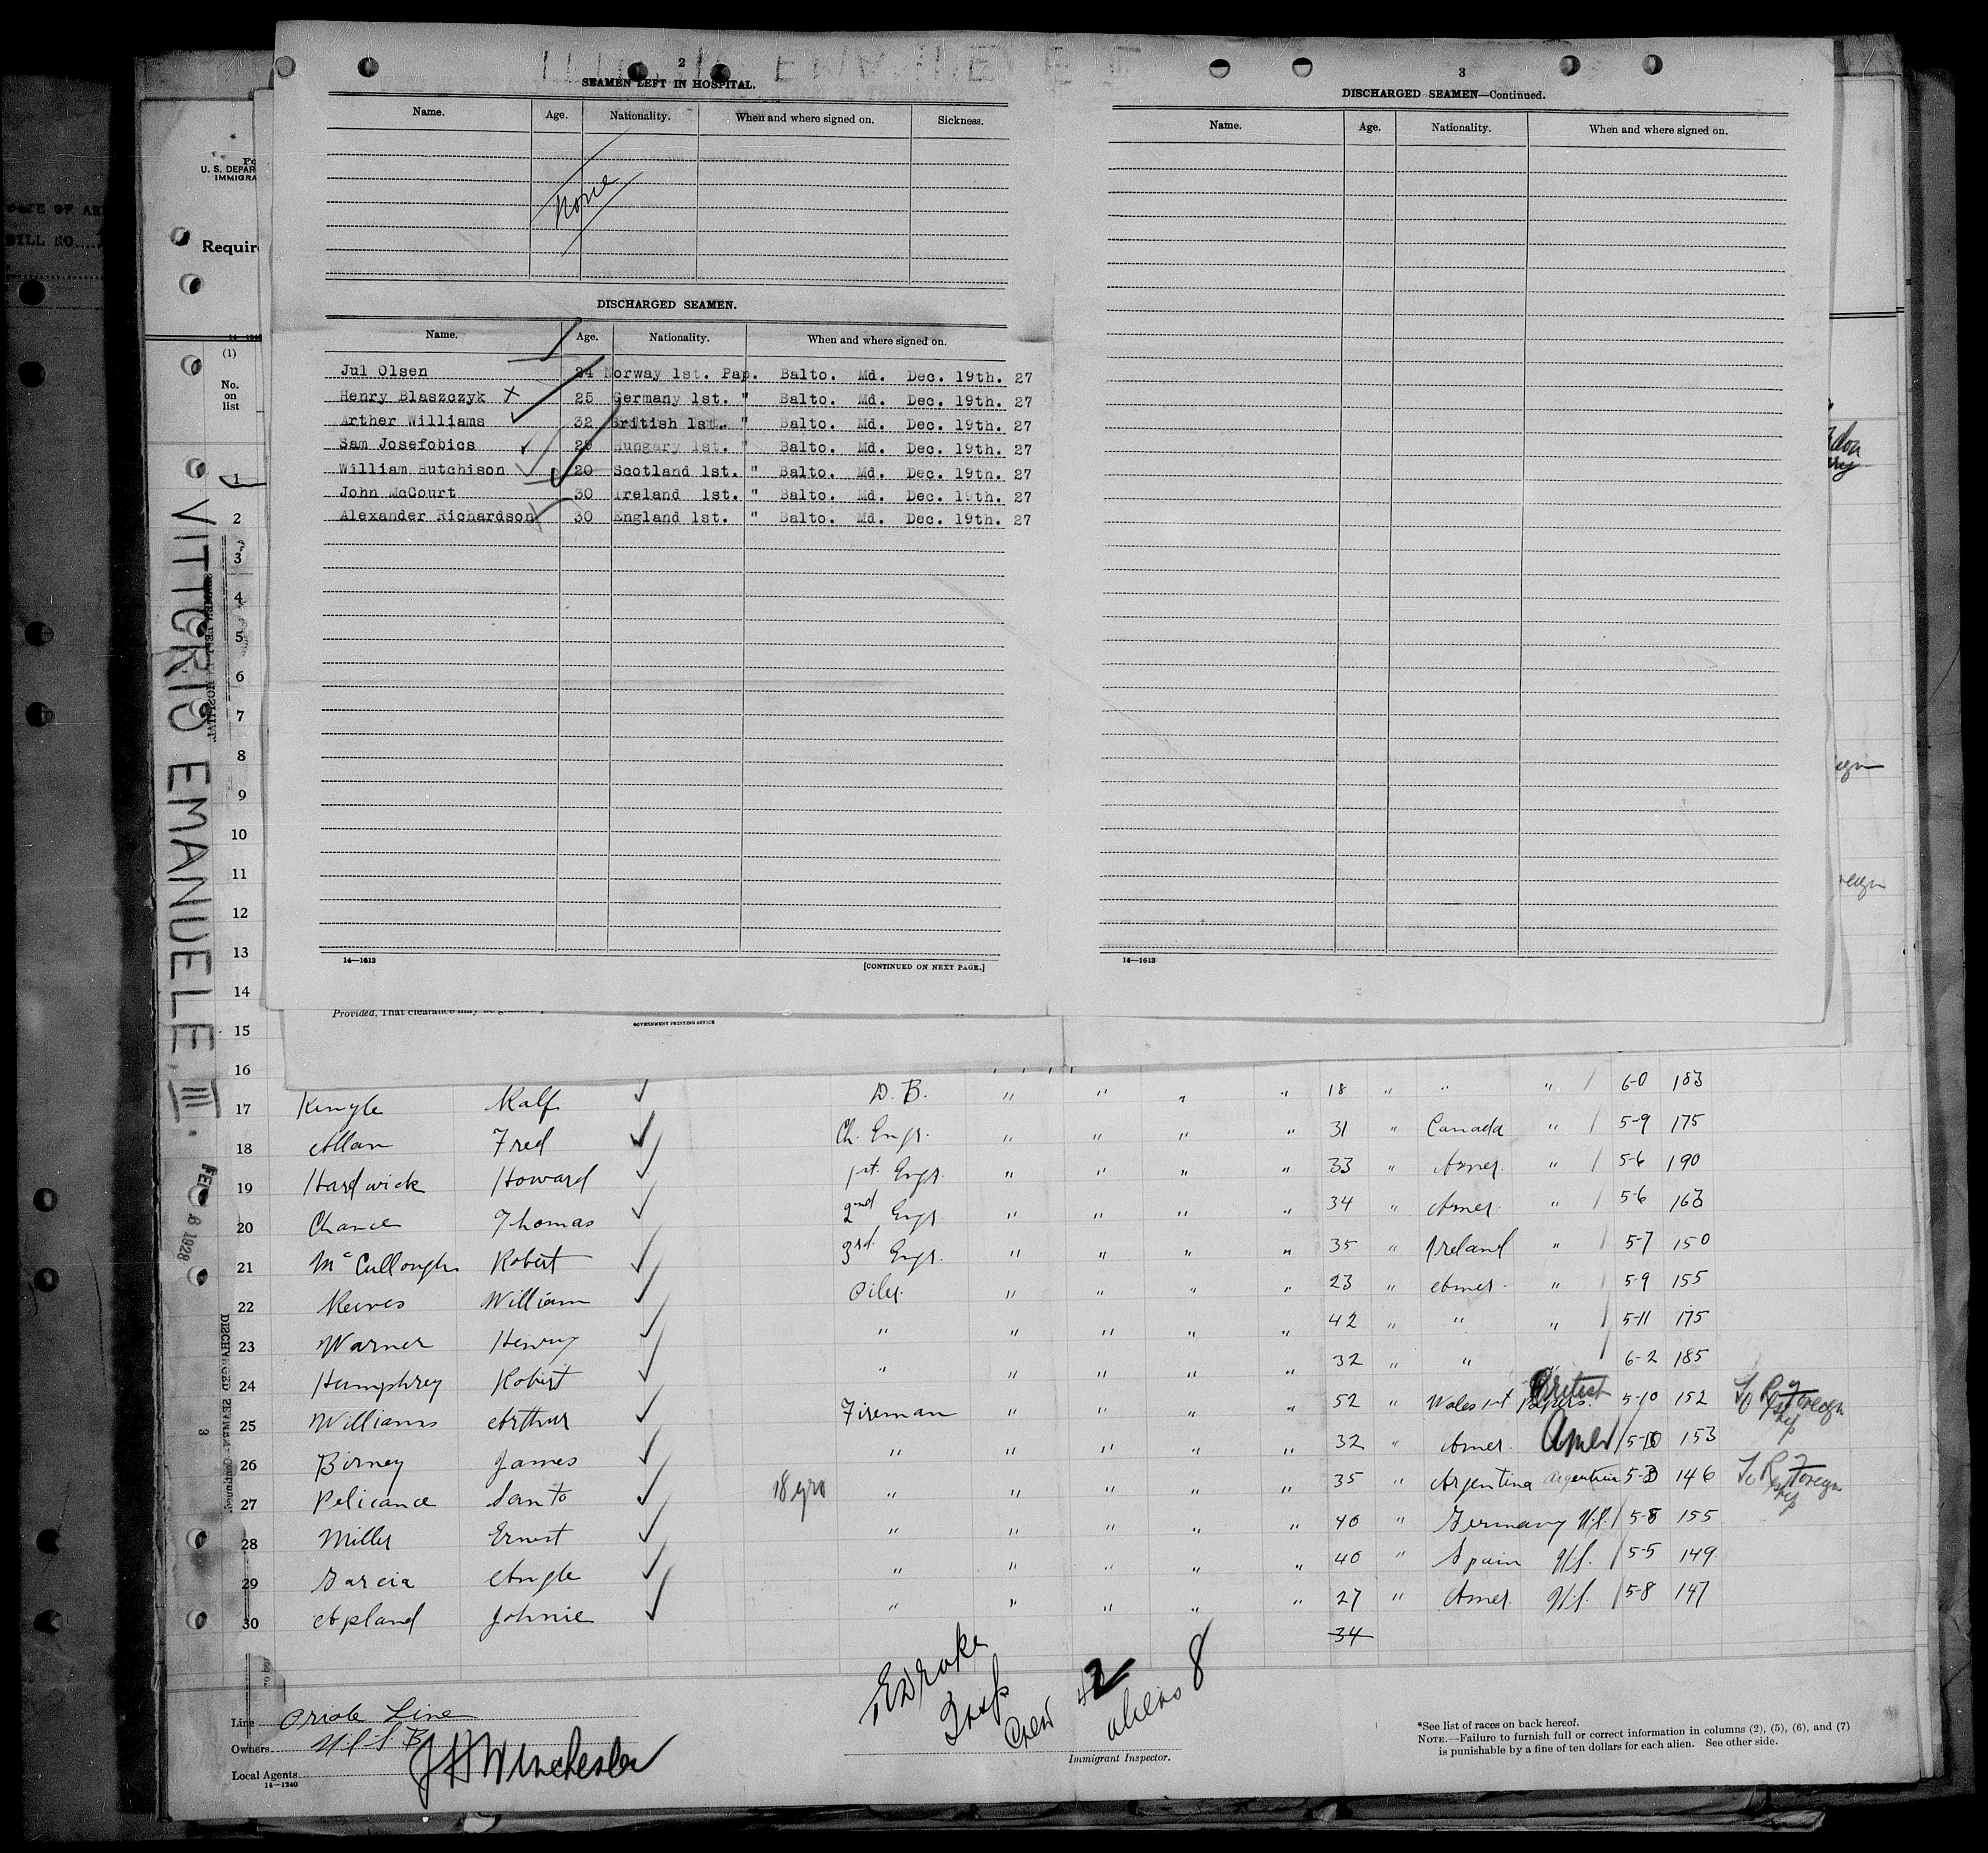 2
SEAMEN LEFT IN HOSPITAL.
Name. Age. Nationality. When and where signed on. Sickness.
None
DISCHARGED SEAMEN.
Name. Age. Nationality. When and where signed on.
Jul Olsen 24 Norway 1st. Pap. Balto. Md. Dec. 19th. 27
Henry Blaszczyk x 25 Germany 1st. " Balto. Md. Dec. 19th. 27
Arther Williams 32 British 1st. " Balto. Md. Dec. 19th. 27
Sam Josefobics 29 Hungary 1st. " Balto. Md. Dec. 19th. 27
William Hutchison 20 Scotland 1st. " Balto. Md. Dec. 19th. 27
John McCourt 30 Ireland 1st. " Balto. Md. Dec. 19th. 27
Alexander Richardson 30 England 1st. " Balto. Md. Dec. 19th. 27
14—1613
[CONTINUED ON NEXT PAGE.]
3
DISCHARGED SEAMEN—Continued.
Name. Age. Nationality. When and where signed on.
14—1613
U. S. DEPAR
IMMIGRA
Requir
(1)
No.
on
list
1
2
3
4
5
6
7
8
9
10
11
12
13
14
15
16
VITTORIO EMANUELE III.
FEB 6 1928
DISCHARGED SEAMEN—Continued.
3
Provided, That clearance may be
GOVERNMENT PRINTING OFFICE
17 Ralf ✓ D. B. " " " " 18 " " " / 6-0 183
18 Allan Fred ✓ Ch. Engr. " " " " 31 " Canada " / 5-9 175
19 Hardwick Howard ✓ 1st. Engr. " " " " 33 " Amer. " / 5-6 190
20 Chance Thomas ✓ 2nd Engr. " " " " 34 " Amer. " / 5-6 163
21 McCullough Robert ✓ 3rd. Engr. " " " " 35 " Ireland " / 5-7 150
22 Reeves William ✓ Oiler. " " " " 23 " Amer. " / 5-9 155
23 Warner Henry ✓ " " " " " 42 " " " / 5-11 175
24 Humphrey Robert ✓ " " " " " 32 " " " / 6-2 185
25 Williams Arthur ✓ Fireman " " " " 52 " Wales 1st Papers. British 5-10 152 To Re Foreign
26 Birney James ✓ " " " " " 32 " Amer. Amer / 153
27 Pelicance Santo ✓ 18 yrs " " " " " 35 " Argentina Argentina 146 To Re Foreign
28 Miller Ernest ✓ " " " " " 40 " Germany U.S. / 5-8 155
29 Garcia Angle ✓ " " " " " 40 " Spain U.S. / 5-5 149
30 Apland Johnie ✓ " " " " " 27 " Amer. U.S. / 5-8 147
34
Line Oriole Line
Owners U.S.S.B.
Local Agents JH Winchester
14—1240
Crew 42
aliens 8
Immigrant Inspector.
*See list of races on back hereof.
NOTE.—Failure to furnish full or correct information in columns (2), (5), (6), and (7)
is punishable by a fine of ten dollars for each alien. See other side.